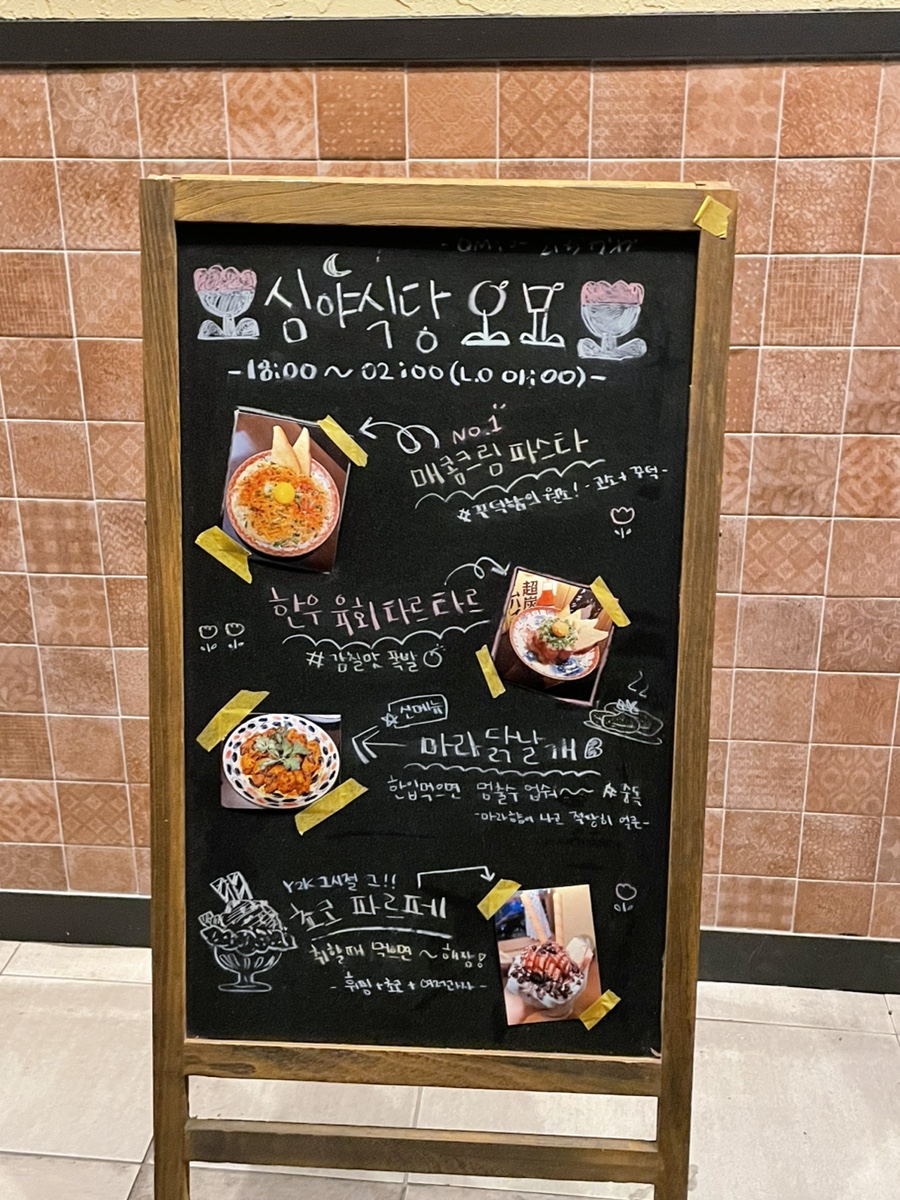 심야식당 요모
-18:00 ~ 02:00 (L.O 01:00)-
NO.1
매콤크림 파스타
#꾸덕함의 원조! -로소+꾸덕-
한우 육회 타르타르
#감칠맛 폭발
超炭
ハイ
신메뉴
마라 닭날개
한입먹으면 멈출수 업쒀~~ #중독
-마라향에 나고 적당히 얼큰-
Y2K 그시절 그!!
초코 파르페
취할때 먹으면 ~ 해장!
-휘핑+초코+